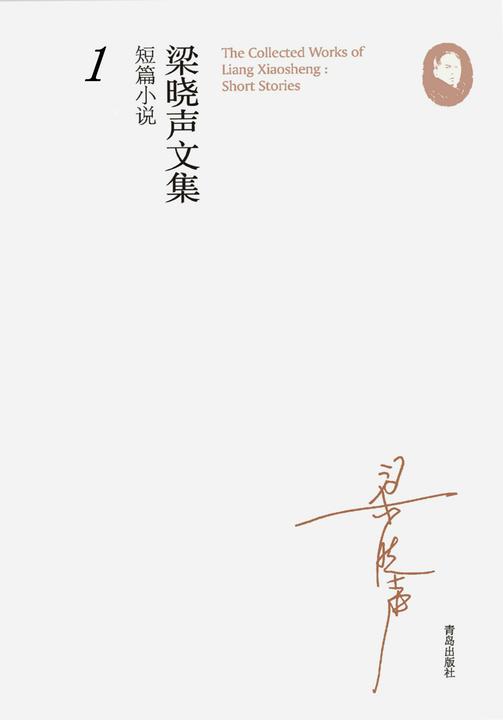 梁晓声文集
短篇小说
1
The Collected Works of
Liang Xiaosheng :
Short Stories
梁晓声
青岛出版社